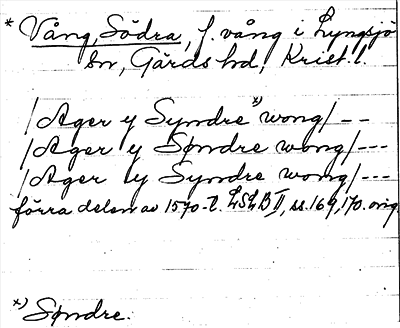 * Vång, Södra, f. vång i Lyngsjö
sn, Gärds hd, Krist. l.
/Ager y Syndre *) wong/ --
/Ager y Søndre wong/ ---
/Ager ly Syndre wong/ ---
förra delen av 1570-t. LSLB II, ss. 169, 170. orig.
*) Søndre.